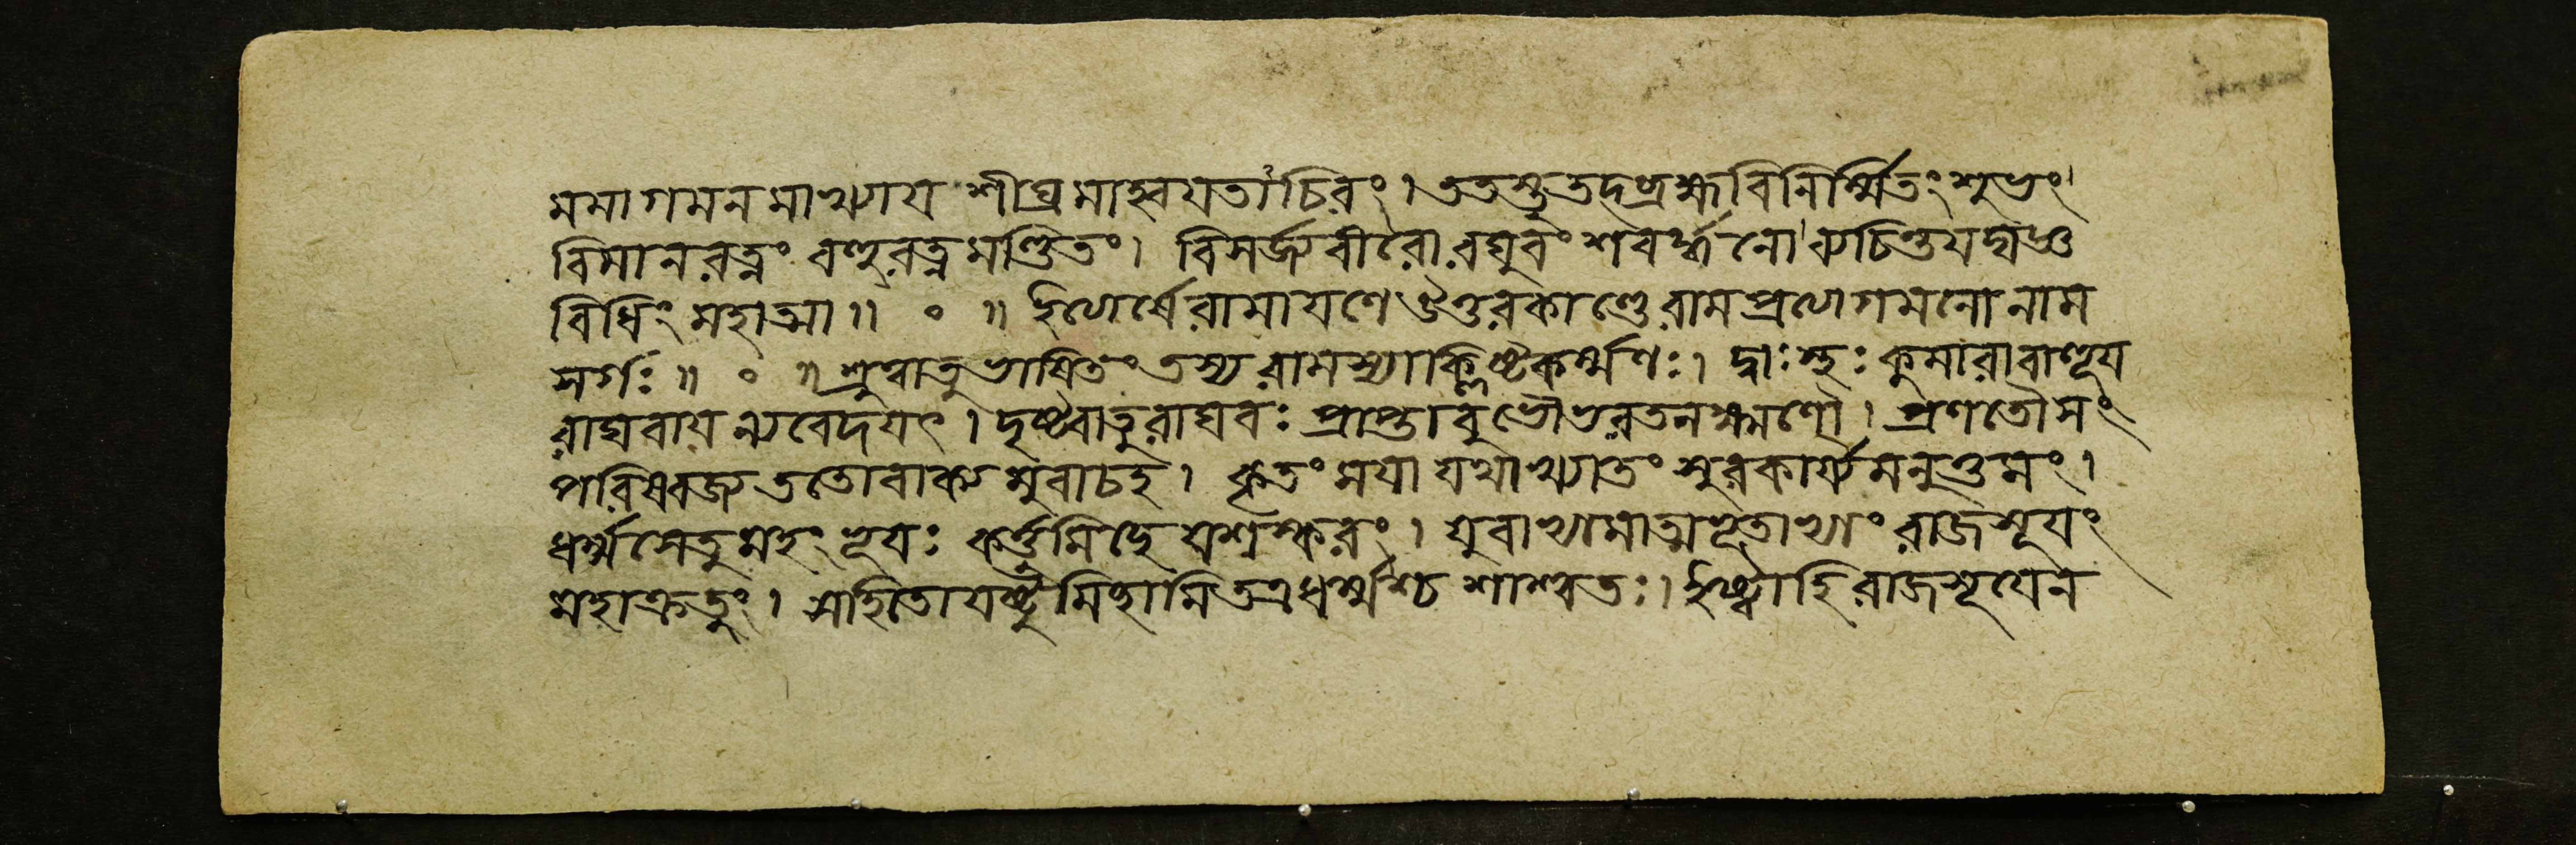 মমাগমনমাখ্যায শীঘ্রমাহ্বযতাংচিরং। ততস্তুতদব্রহ্মবিনির্ম্মিতংশুভং
বিমানরত্নং বহুরত্নমণ্ডিতং। বিসর্জ্যবীরোরঘুবংশবর্দ্ধনোব্যচিন্তযদ্যজ্ঞ
বিধিং মহাত্মা॥ ॰ ॥ ইত্যার্ষেরামাযণেঔত্তরকাণ্ডেরামপ্রত্যাগমনোনাম
সর্গঃ॥ ॰ ॥ শ্রুত্বাতুভাষিতংতস্যরামস্যাক্লিষ্টকর্ম্মণঃ। দ্বাঃস্থঃকুমারাবাহূয
রাঘবায ন্যবেদযৎ। দৃষ্টবাতুরাঘবঃ প্রাপ্তাবুভৌভরতলক্ষ্মণৌ। প্রণতৌসং
পরিষ্বজ্য ততোবাক্যমুবাচহ। কৃতং মযা যথাখ্যাতং সুরকার্য্যমনুত্তমং।
ধর্ম্মসেতুমহং ভূযঃ কর্ত্তুমিচ্ছে যশস্করং। যুবাভ্যামাত্মভূতাভ্যাং রাজসূযং
মহাক্রতুং। সহিতোযষ্টুমিচ্ছামিতত্রধর্ম্মশ্চ শাশ্বতঃ। ইষ্ট্বাহিরাজসূযেন